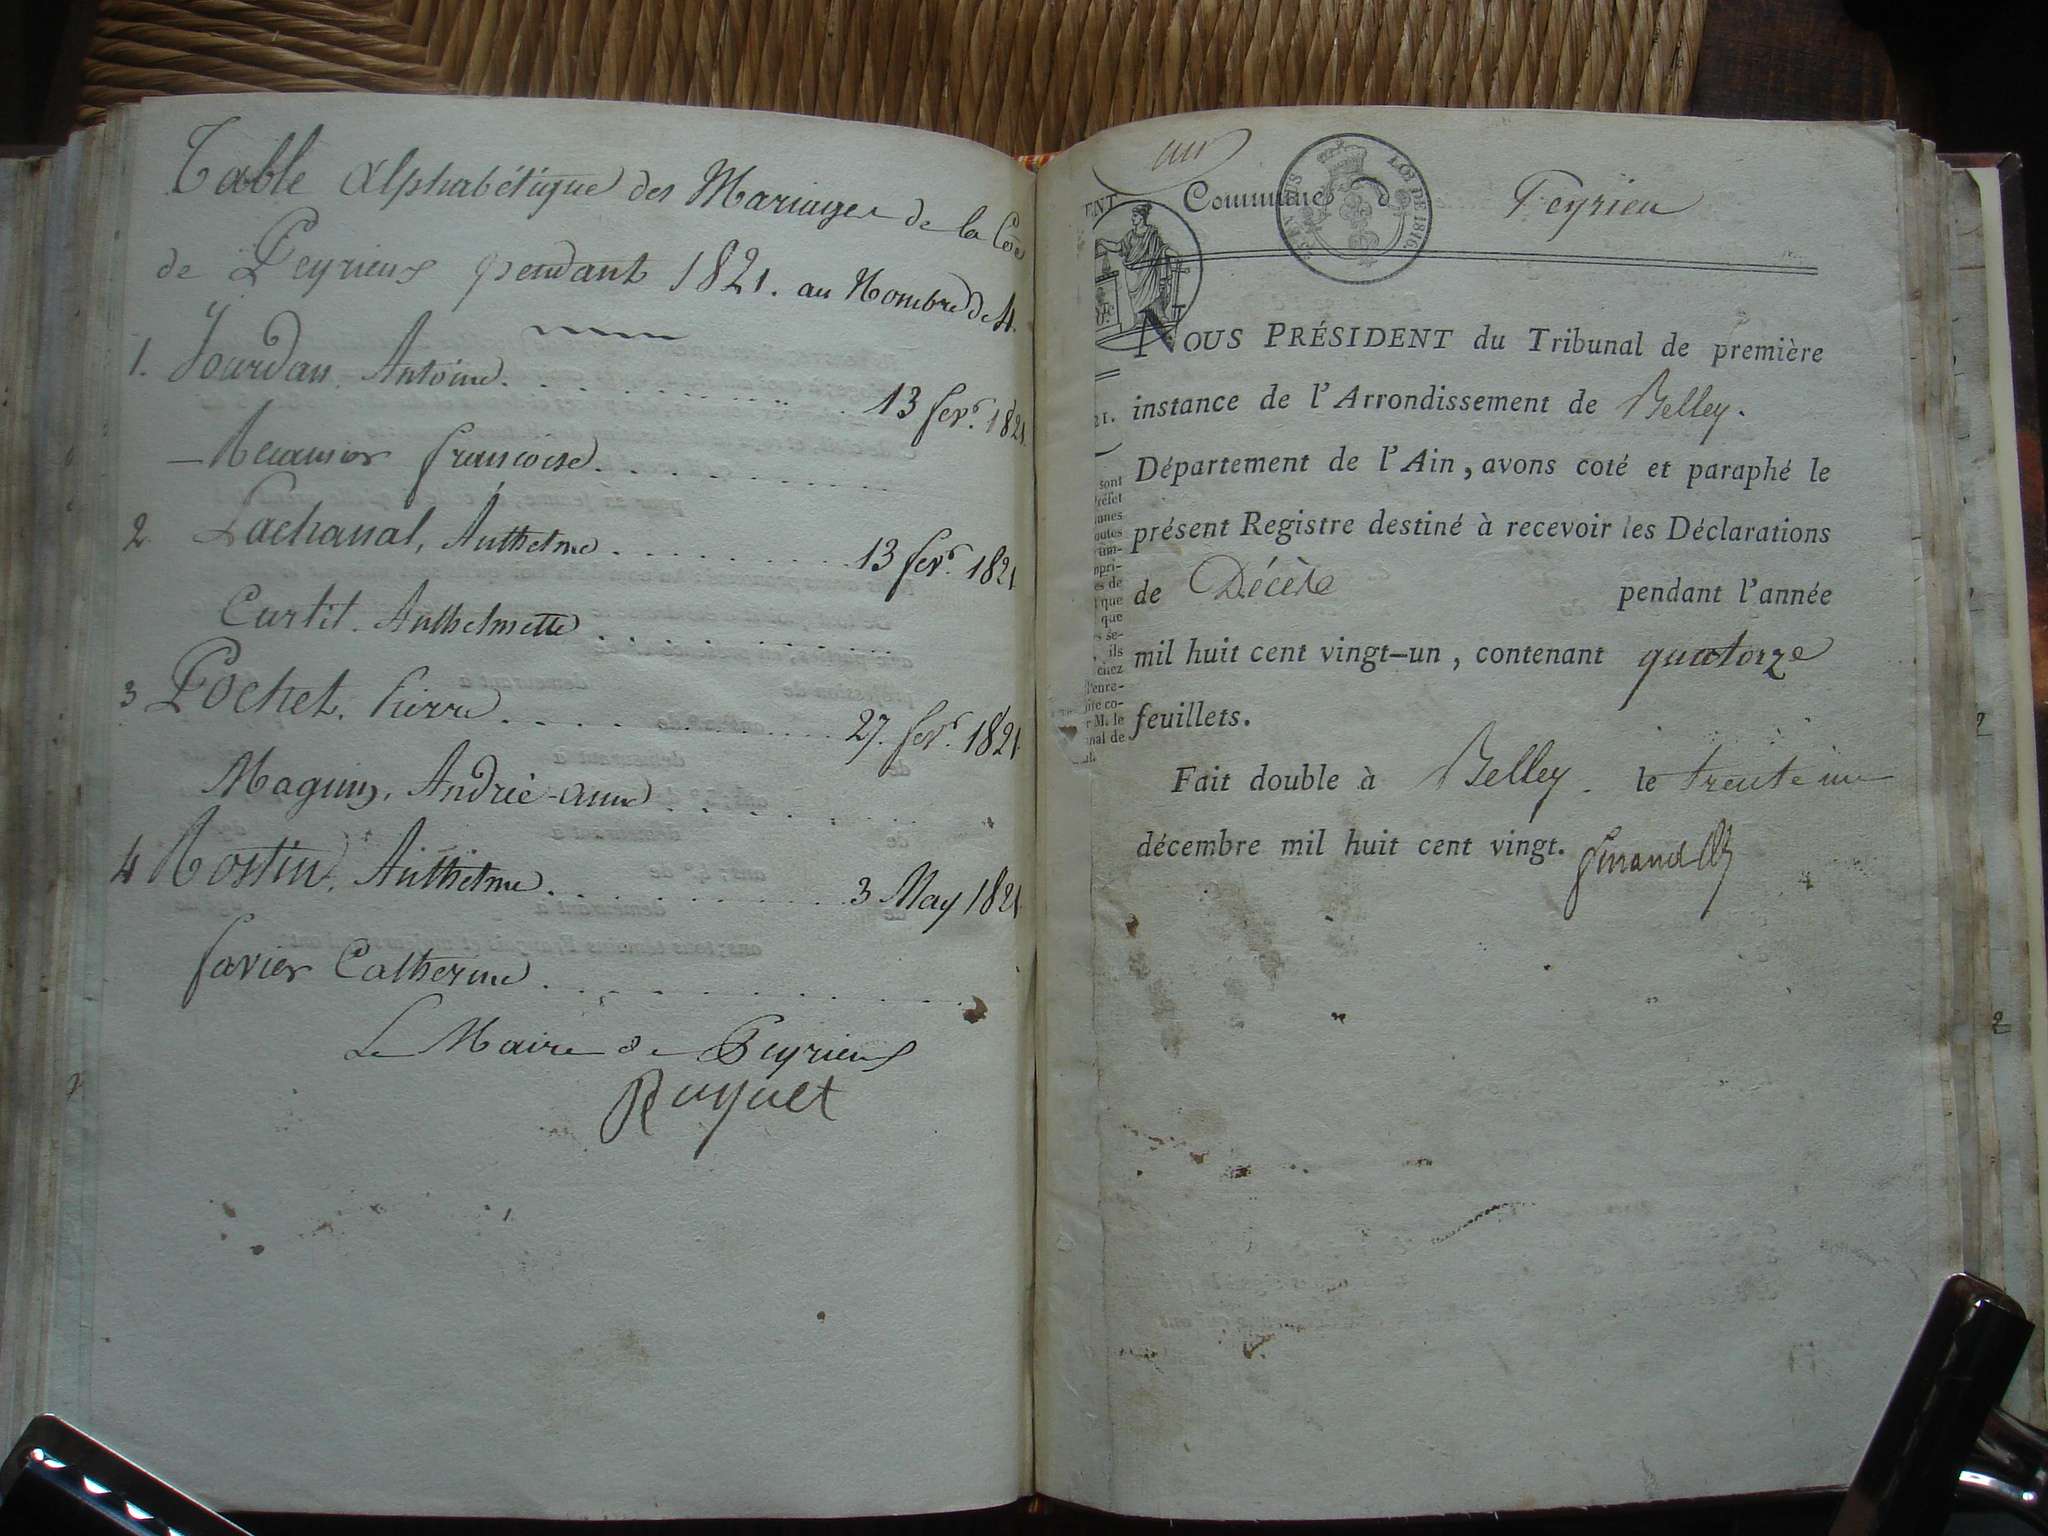 Table alphabétique des Mariages de la Cne
de Peyrieux pendant 1821. au Nombre de 4.
1. Jourdan, Antoine. 13 fevr. 1821
Françoise.
2 Lachanal, Anthelme 13 fevr. 1821
Curtit. Anthelmette
3 Pochet. Pierre 27. fevr. 1821.
Magnin, Andrié-anne
4 Rostin, Anthelme. 3 May 1821
favier Catherine
Le Maire de Peyrieux
Ruquet
un
Commune d Peyrieu
TIMBRE LOI DE 1816
NOUS PRÉSIDENT du Tribunal de première
instance de l'Arrondissement de Belley.
Département de l'Ain, avons coté et paraphé le
présent Registre destiné à recevoir les Déclarations
de Décès pendant l'année
mil huit cent vingt-un, contenant quatorze
feuillets.
Fait double à Belley. le trente un
décembre mil huit cent vingt.